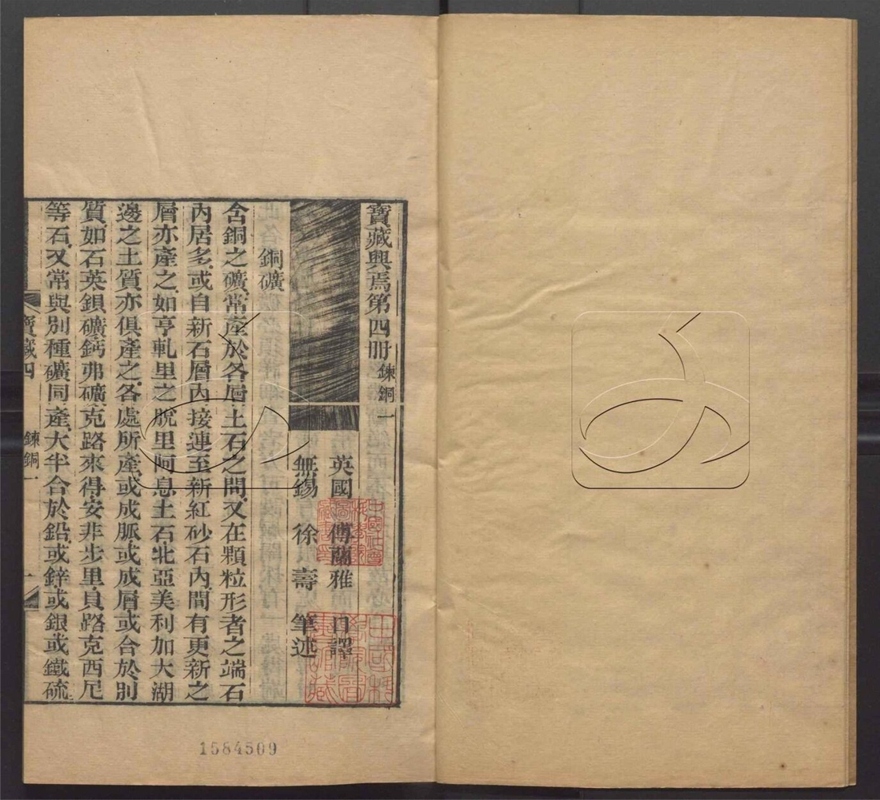 寶藏興焉第四冊 鍊銅一
英國 傅蘭雅 口譯
無錫 徐壽 筆述
銅礦
含銅之礦常產於各層土石之間又在顆粒形者之端石
內居多或自新石層內接連至新紅砂石內間有更新之
層亦產之如亨軋里之脫里阿息土石北亞美利加大湖
邊之土質亦俱產之各處所產或成脈或成層或合於別
質如石英鋇礦鈣弗礦克路來得安非步里貝路克西尼
等石又常與別種礦同產大半合於鉛或鋅或銀或鐵硫
寶藏四 鍊銅一 一
1584509